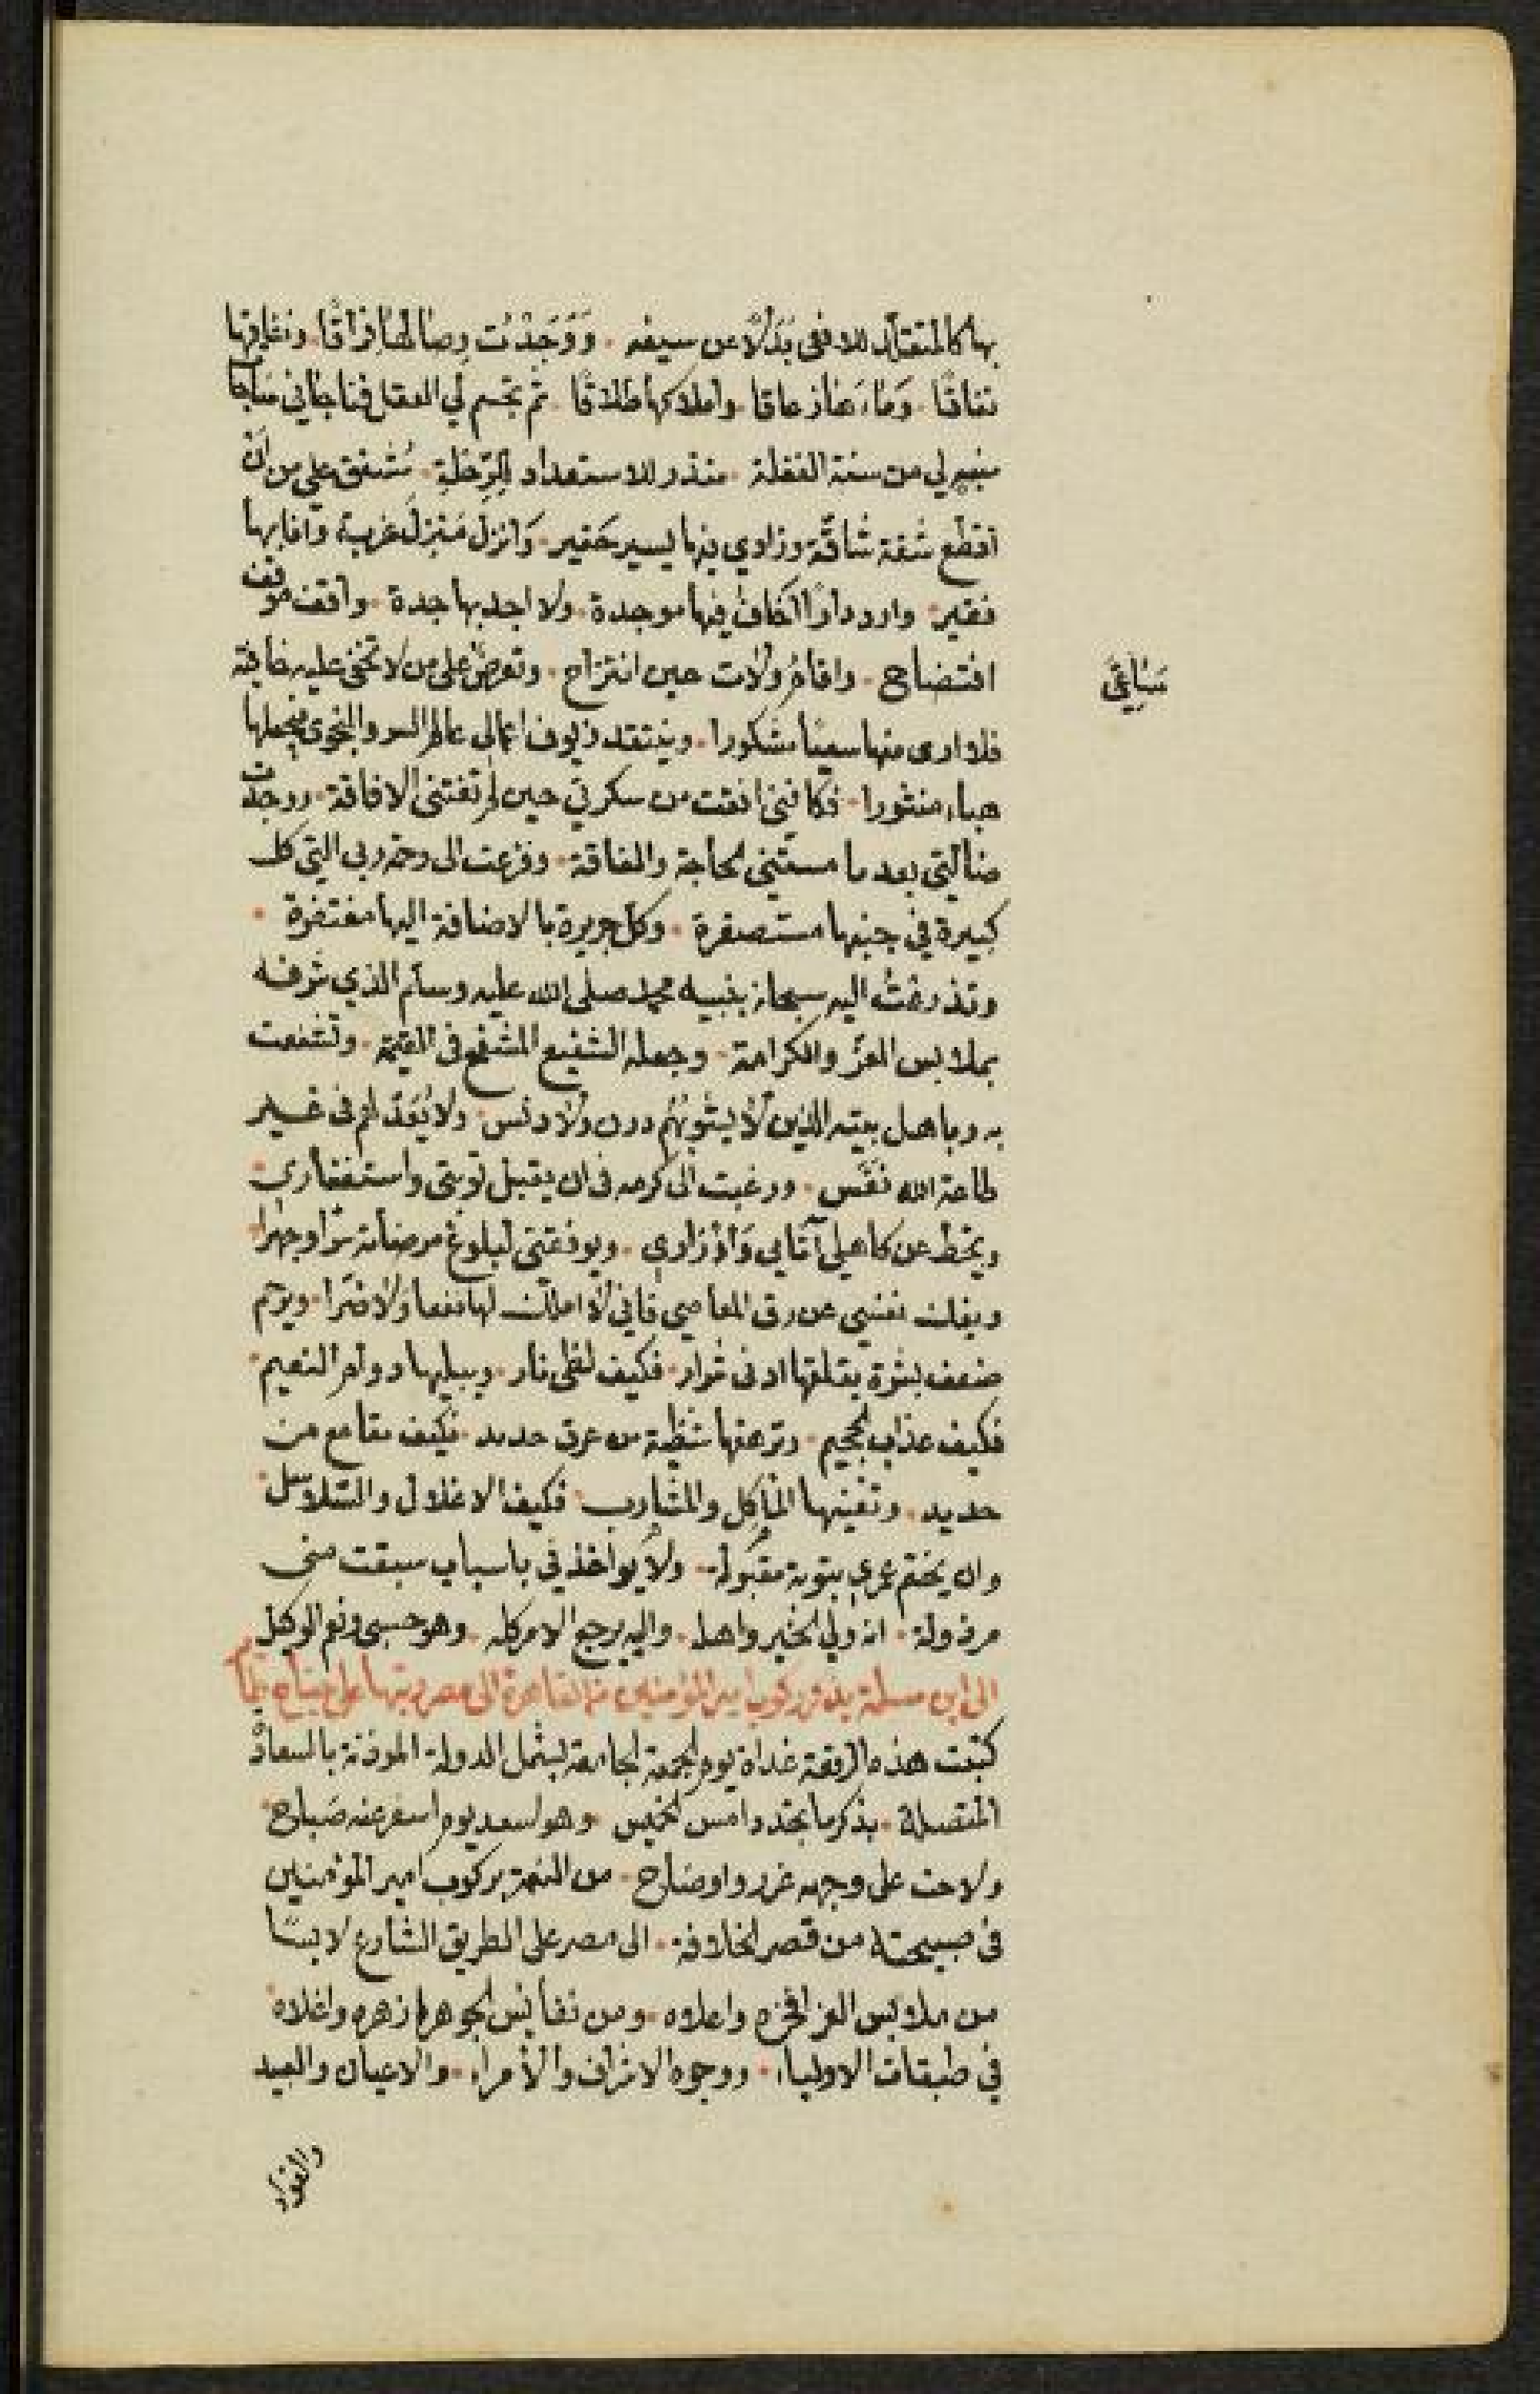 بها كالمتقلد للافعى بدلا عن سيفه . ووجدت وصالها فراقا . ونفاقها
نفاقا . وماءها زعاقا . واملاكها طلاقا . ثم تجسم لي العقل فناجاني مناجاة
من سنة الغفلة . منذر للاستعداد للرحلة . مشفق علي من ان
اقطع شقة شاقة وزادي فيها يسير حقير . وانزل منزل غربة وانا بها
فقير . وارد دارا اكافي فيها موجدة . ولا اجد بها جدة . واقف موقف
افتضاح . واقام ولات حين انتزاح . وتعرض على من لا تخفى عليه خافية
مساعي
فلا ارى منها سعيا مشكورا . وينتقد زيوف اعمالي عالم السر والنجوى فيجعلها
هباء منثورا . فكانني افقت من سكرتي حين لم تفتني الافاقة . ووجدت
ضالتي بعد ما مستني الحاجة والفاقة . وفزعت الى رحمة ربي التي كل
كبيرة في جنبها مستصغرة . وكل جريرة بالاضافة اليها مغتفرة .
وتذرعت اليه سبحانه بنبيه محمد صلى الله عليه وسلم الذي شرفه
بملابس العز والكرامة . وجعله الشفيع المشفع في القيمة . وتشفعت
به وباهل بيته الذين لا يشوبهم درن ولا دنس . ولا يعد لهم في غير
طاعة الله نفس . ورغبت الى كرمه في ان يقبل توبتي واستغفاري
ويحط عن كاهلي آثامي واوزاري . ويوفقني لبلوغ مرضاته سرا وجهرا
ويفك نفسي عن رق المعاصي فاني لا املك لها نفعا ولا ضرا . ويرحم
ضعف بشرة يقلقها ادنى شرار . فكيف لظى نار . ويبليها دوام النعيم
فكيف عذاب الجحيم . وترهقها شظية من عرق حديد . فكيف مقامع من
حديد . وتفنيها المآكل والمشارب . فكيف الاغلال والسلاسل
وان يختم عمري بتوبة مقبولة . ولا يواخذني باسباب سبقت مني
مرذولة . انه ولي الخير واهله . واليه يرجع الامر كله . وهو حسبي ونعم الوكيل
الى ابن مسلمة يذكر ركوب امير المؤمنين من القاهرة الى مصر
كتبت هذه الرقعة غداة يوم الجمعة الجامعة لشمل الدولة الموذنة بالسعادة
المتصلة . بذكر ما تجدد امس الخميس . وهو اسعد يوم اسفر عنه صباح
ولاحت على وجهه غرر واوضاح . من النعمة بركوب امير المؤمنين
في صبيحته من قصر الخلافة . الى مصر على الطريق الشارع لابسا
من ملابس العز افخره واعلاه . ومن نفائس الجوهر ازهره واغلاه
في طبقات الاولياء . ووجوه الاشراف والامراء . والاعيان والعبيد
والقواد